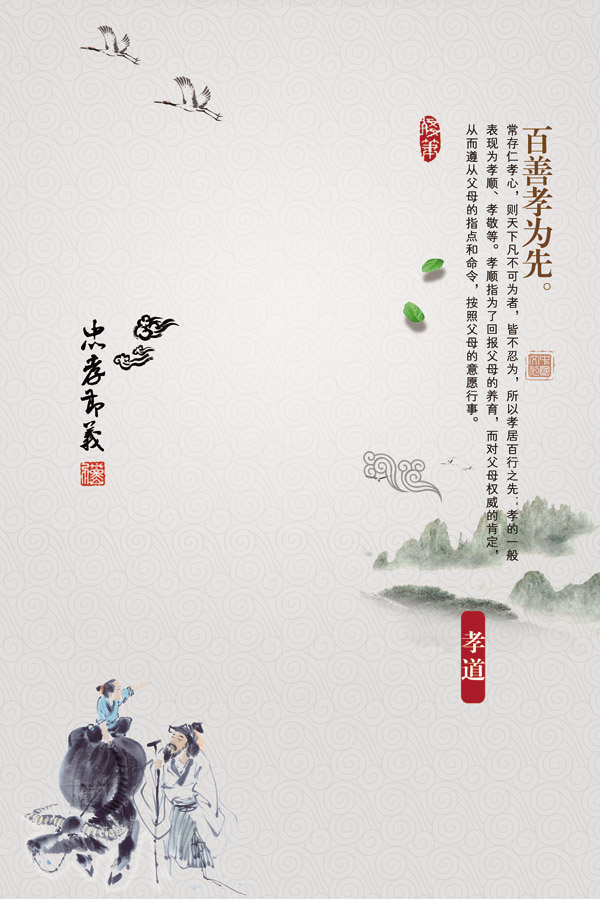 百善孝为先。
常存仁孝心，则天下凡不可为者，皆不忍为，所以孝居百行之先；孝的一般
表现为孝顺、孝敬等。孝顺指为了回报父母的养育，而对父母权威的肯定，
从而遵从父母的指点和命令，按照父母的意愿行事。
孝道
忠孝节義